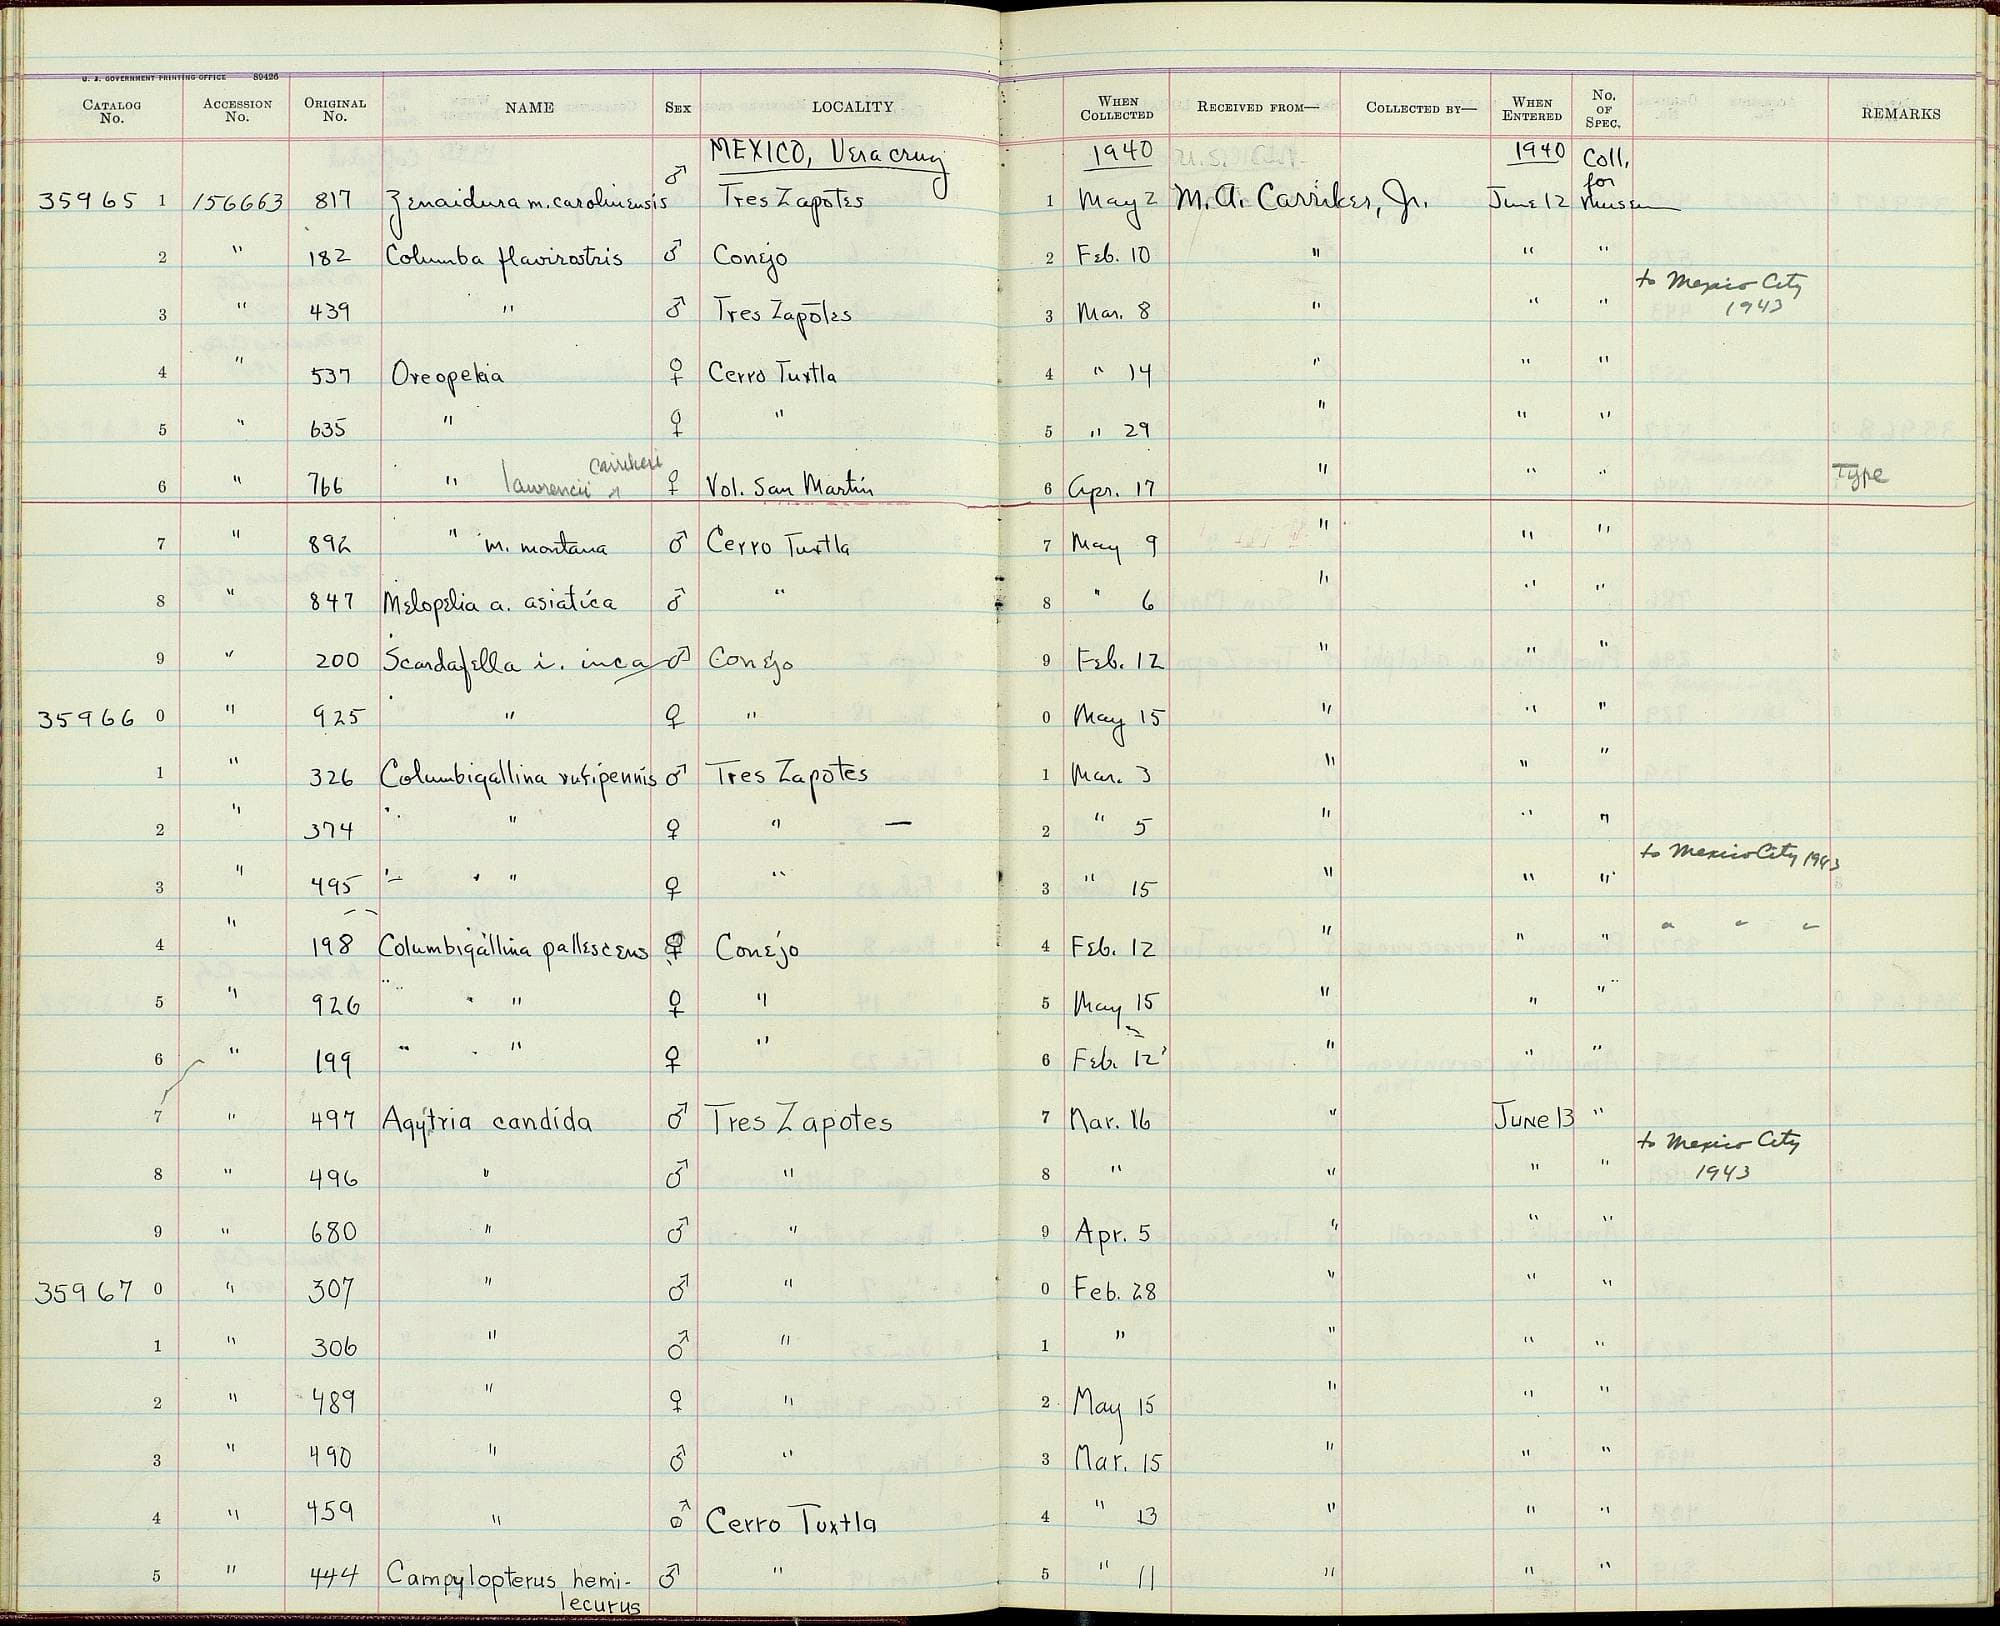 U. S. GOVERNMENT PRINTING OFFICE 89426
CATALOG No. ACCESSION No. ORIGINAL No. NAME SEX LOCALITY WHEN COLLECTED RECEIVED FROM— COLLECTED BY— WHEN ENTERED No. OF SPEC. REMARKS
MEXICO, Vera cruz 1940 1940 Coll. for
35965 1 156663 817 Zenaidura m. carolinensis ♂ Tres Zapotes 1 May 2 M. A. Carriker, Jr. June 12 Museum
2 " 182 Columba flavirostris ♂ Conejo 2 Feb. 10 " " "
3 " 439 " ♂ Tres Zapotes 3 Mar. 8 " " " to Mexico City 1943
4 " 537 Oreopeleia ♀ Cerro Tuxtla 4 " 14 " " "
5 " 635 " ♀ " 5 " 29 " " "
6 " 766 " lawrencii carrikeri ♀ Vol. San Martín 6 Apr. 17 " " " Type
7 " 892 " m. montana ♂ Cerro Tuxtla 7 May 9 " " "
8 " 847 Melopelia a. asiatica ♂ " 8 " 6 " " "
9 " 200 Scardafella i. inca ♂ Conejo 9 Feb. 12 " " "
35966 0 " 925 " ♀ " 0 May 15 " " "
1 " 326 Columbigallina rufipennis ♂ Tres Zapotes 1 Mar. 3 " " "
2 " 374 " " ♀ " — 2 " 5 " " "
3 " 495 " " ♀ " 3 " 15 " " " to Mexico City 1943
4 " 198 Columbigallina pallescens ♀ Conejo 4 Feb. 12 " " " " " "
5 " 926 " " ♀ " 5 May 15 " " "
6 " 199 " " ♀ " 6 Feb. 12 " " "
7 " 497 Agytria candida ♂ Tres Zapotes 7 Mar. 16 " June 13 "
8 " 496 " ♂ " 8 " " " " to Mexico City 1943
9 " 680 " ♂ " 9 Apr. 5 " " "
35967 0 " 307 " ♂ " 0 Feb. 28 " " "
1 " 306 " ♂ " 1 " " " "
2 " 489 " ♀ " 2 May 15 " " "
3 " 490 " ♂ " 3 Mar. 15 " " "
4 " 459 " ♂ Cerro Tuxtla 4 " 13 " " "
5 " 444 Campylopterus hemi- ♂ " 5 " 11 " " "
lecurus